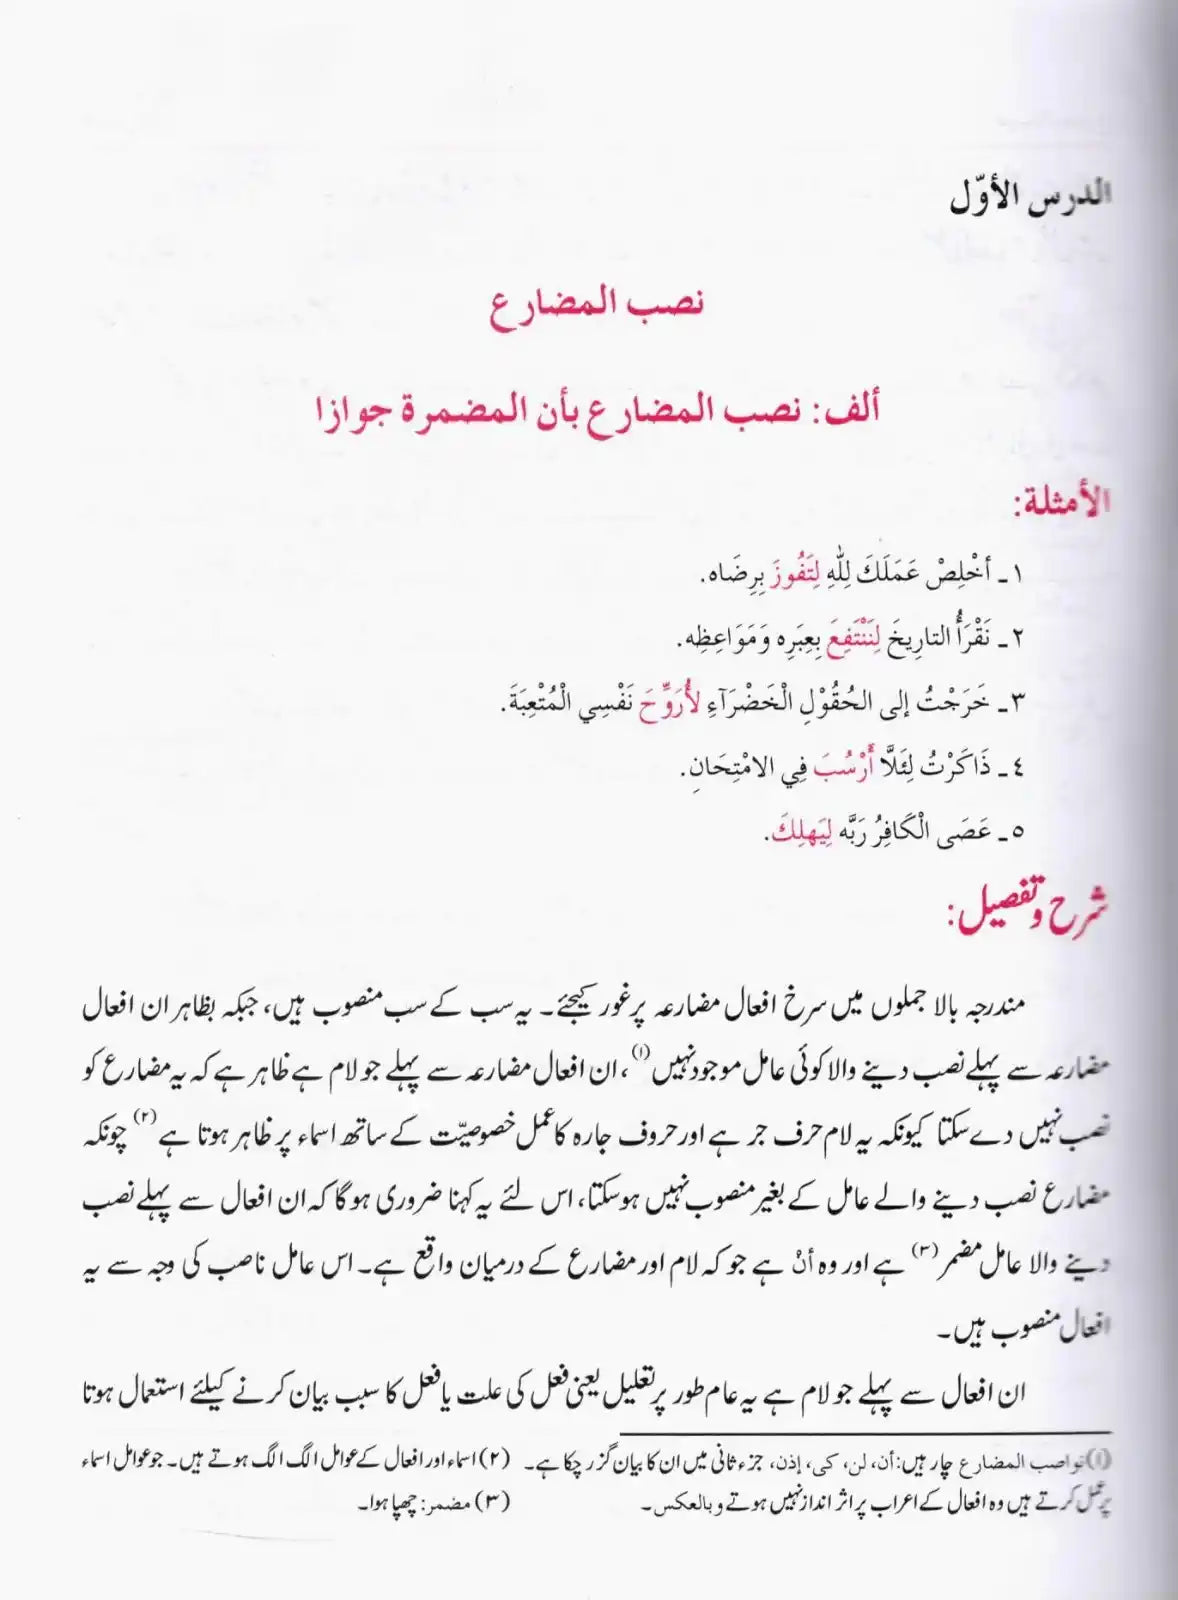 الدرس الأوّل
نصب المضارع
ألف: نصب المضارع بأن المضمرة جوازا
الأمثلة:
١ـ أخْلِصْ عَمَلَكَ لِلّٰهِ لِتَفُوزَ بِرِضَاه.
٢ـ نَقْرَأُ التاريخَ لِنَنْتَفِعَ بِعِبَرِه وَمَوَاعِظِه.
٣ـ خَرَجْتُ إلى الحُقُوْلِ الْخَضْرَآءِ لأُرَوِّحَ نَفْسِي الْمُتْعِبَةَ.
٤ـ ذَاكَرْتُ لِئَلَّا أَرْسُبَ فِي الامْتِحَانِ.
٥ـ عَصَى الْكَافِرُ رَبَّه لِيَهلِكَ.
شرح و تفصیل:
مندرجہ بالا جملوں میں سرخ افعال مضارعہ پر غور کیجئے۔ یہ سب کے سب منصوب ہیں، جبکہ بظاہر ان افعال
مضارعہ سے پہلے نصب دینے والا کوئی عامل موجود نہیں(۱)، ان افعال مضارعہ سے پہلے جو لام ہے ظاہر ہے کہ یہ مضارع کو
نصب نہیں دے سکتا کیونکہ یہ لام حرف جر ہے اور حروف جارہ کا عمل خصوصیّت کے ساتھ اسماء پر ظاہر ہوتا ہے(۲) چونکہ
مضارع نصب دینے والے عامل کے بغیر منصوب نہیں ہوسکتا، اس لئے یہ کہنا ضروری ہوگا کہ ان افعال سے پہلے نصب
دینے والا عامل مضمر(۳) ہے اور وہ أنْ ہے جو کہ لام اور مضارع کے درمیان واقع ہے۔ اس عامل ناصب کی وجہ سے یہ
افعال منصوب ہیں۔
ان افعال سے پہلے جو لام ہے یہ عام طور پر تعلیل یعنی فعل کی علت یا فعل کا سبب بیان کرنے کیلئے استعمال ہوتا
(۱) نواصب المضارع چار ہیں: أن، لن، كي، إذن، جزء ثانی میں ان کا بیان گزر چکا ہے۔ (۲) اسماء اور افعال کے عوامل الگ الگ ہوتے ہیں۔ جو عوامل اسماء
پر عمل کرتے ہیں وہ افعال کے اعراب پر اثر انداز نہیں ہوتے وبالعكس۔ (۳) مضمر: چھپا ہوا۔